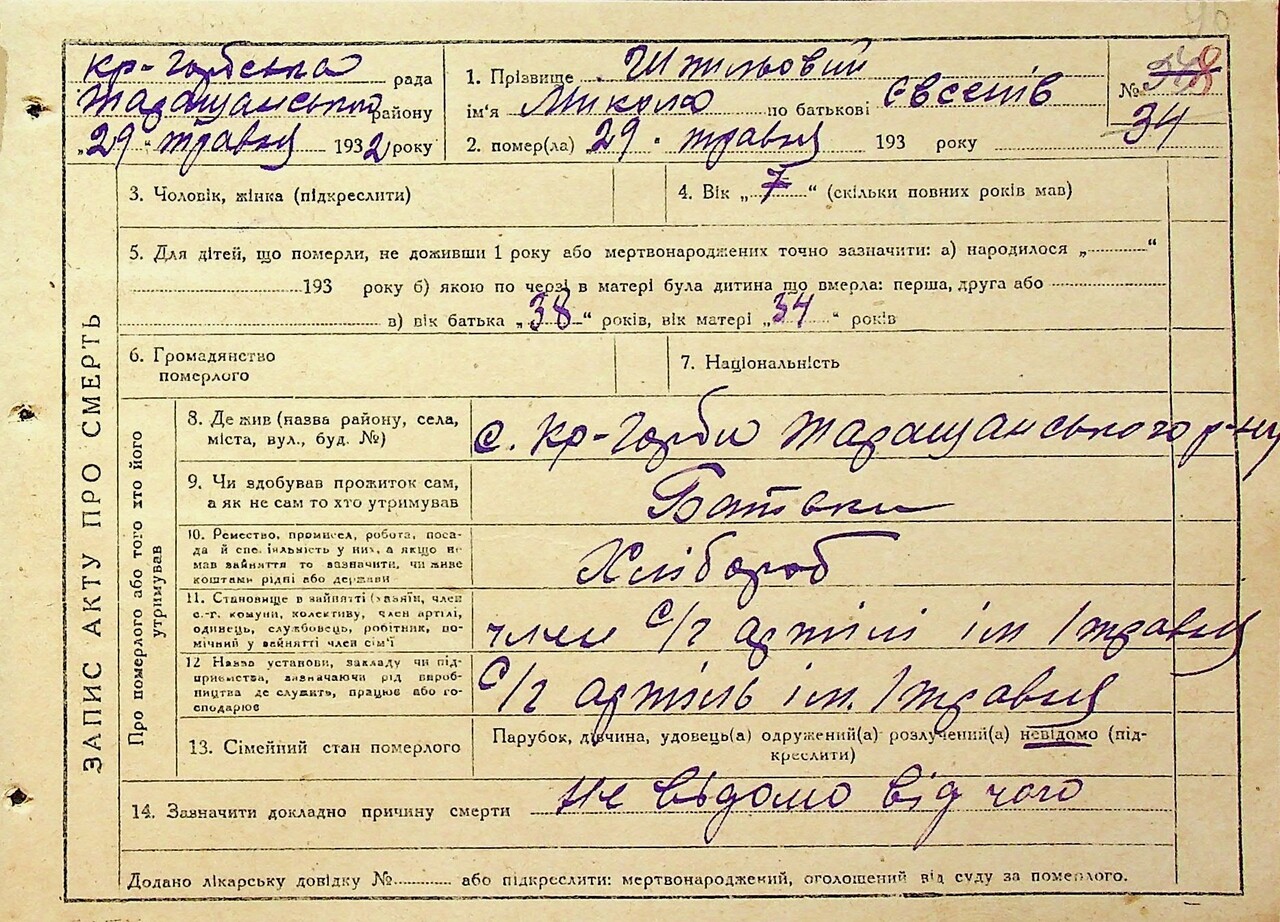 кр-Горбська рада
Таращанський району
„29“ травня 1932 року
1. Прізвище Штильовий
ім'я Микола по батькові Євсенів
2. помер(ла) 29 травня 193 року
№ 8
34
ЗАПИС АКТУ ПРО СМЕРТЬ
3. Чоловік, жінка (підкреслити)
4. Вік „7“ (скільки повних років мав)
5. Для дітей, що померли, не доживши 1 року або мертвонароджених точно зазначити: а) народилося „ “
193 року б) якою по черзі в матері була дитина що вмерла: перша, друга або
в) вік батька „38“ років, вік матері „34“ років
6. Громадянство
померлого
7. Національність
Про померлого або того хто його
утримував
8. Де жив (назва району, села,
міста, вул., буд. №)
с. Кр-Горби Таращанського р-ну
9. Чи здобував прожиток сам,
а як не сам то хто утримував
Батьки
10. Ремество, промисел, робота, поса-
да й спеціяльність у них, а якщо не
мав зайняття то зазначити, чи живе
коштами рідні або держави
Хлібороб
11. Становище в зайнятті (хазяїн, член
с.-г. комуни, колективу, член артілі,
одинець, службовець, робітник, по-
мічний у зайнятті член сім'ї
член с/г артілі ім 1 травня
12 Назва установи, закладу чи під-
приємства, зазначаючи рід вироб-
ництва де служить, працює або го-
сподарює
с/г артіль ім. 1 травня
13. Сімейний стан померлого
Парубок, дівчина, удовець(а) одружений(а) розлучений(а) невідомо (під-
креслити)
14. Зазначити докладно причину смерти не відомо від чого
Додано лікарську довідку № або підкреслити: мертвонароджений, оголошений від суду за померлого.